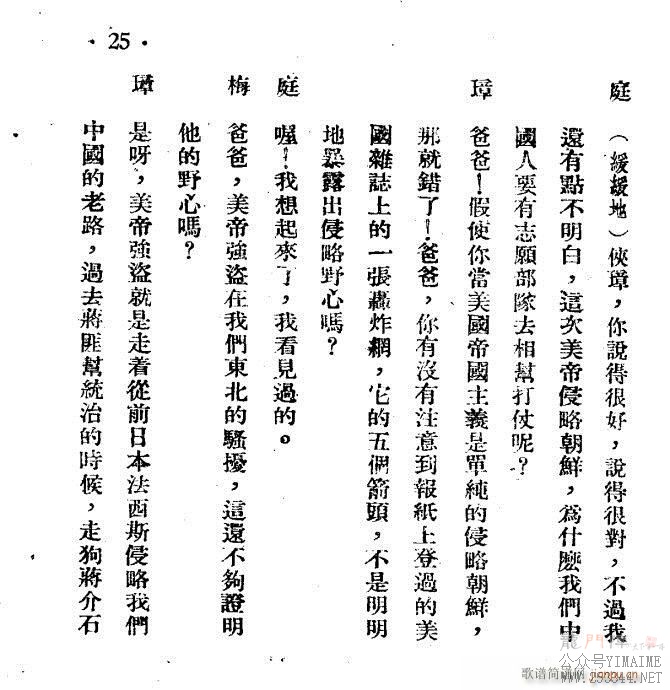 ·25·
庭　（緩緩地）俠璋，你說得很好，說得很對，不過我
還有點不明白，這次美帝侵略朝鮮，爲什麽我們中
國人要有志願部隊去相幫打仗呢？
璋　爸爸！假使你當美國帝國主義是單純的侵略朝鮮，
那就錯了！爸爸，你有沒有注意到報紙上登過的美
國雜誌上的一張轟炸網，它的五個箭頭，不是明明
地暴露出侵略野心嗎？
庭　喔！我想起來了，我看見過的。
梅　爸爸，美帝強盜在我們東北的騷擾，這還不夠證明
他的野心嗎？
璋　是呀，美帝強盜就是走着從前日本法西斯侵略我們
中國的老路，過去蔣匪幫統治的時候，走狗蔣介石
公众号YIMAIME
歌谱简谱网